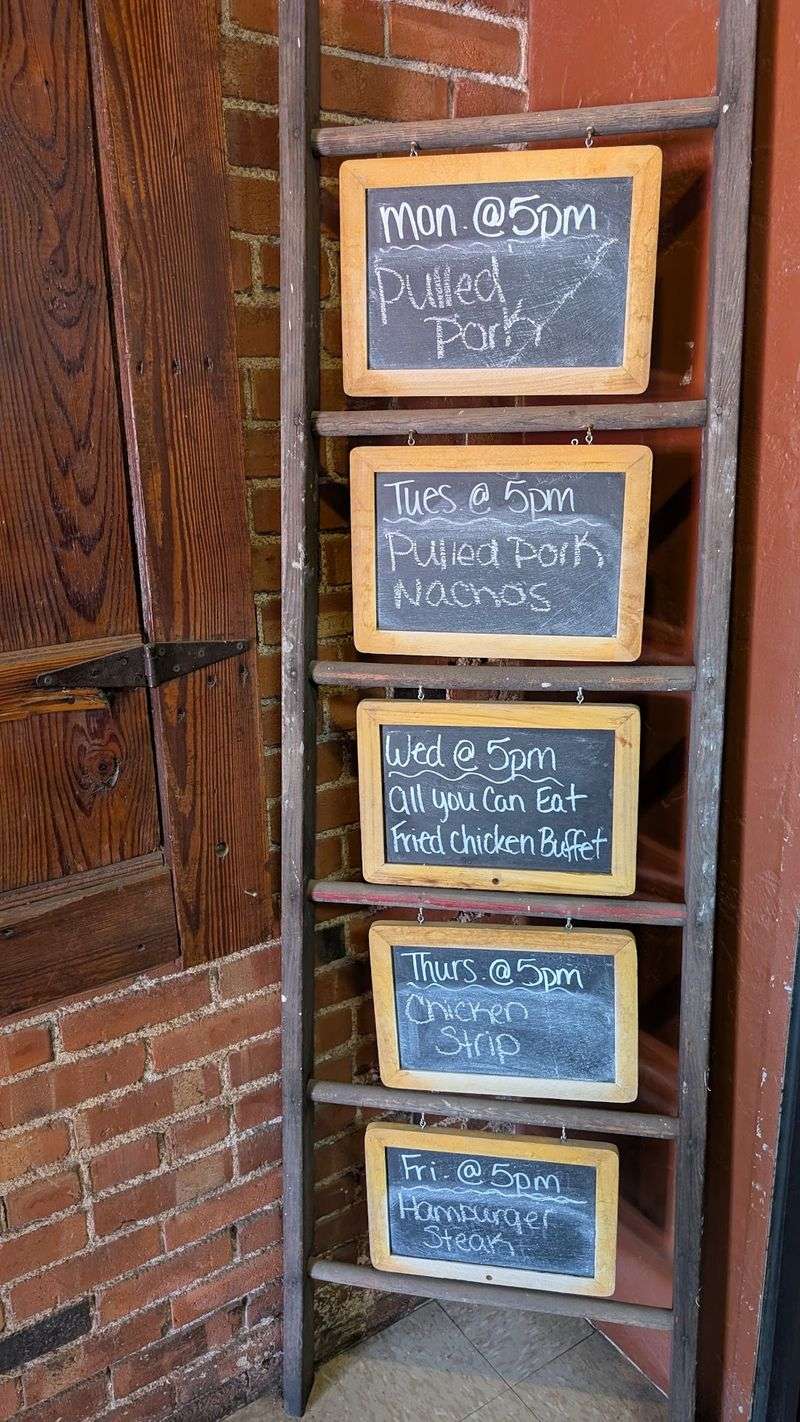 Mon. @5pm
Pulled
Pork
Tues @ 5pm
Pulled Pork
Nachos
Wed @ 5pm
all you Can Eat
Fried chicken Buffet
Thurs @5pm
Chicken
Strip
Fri. @5pm
Hamburger
Steak